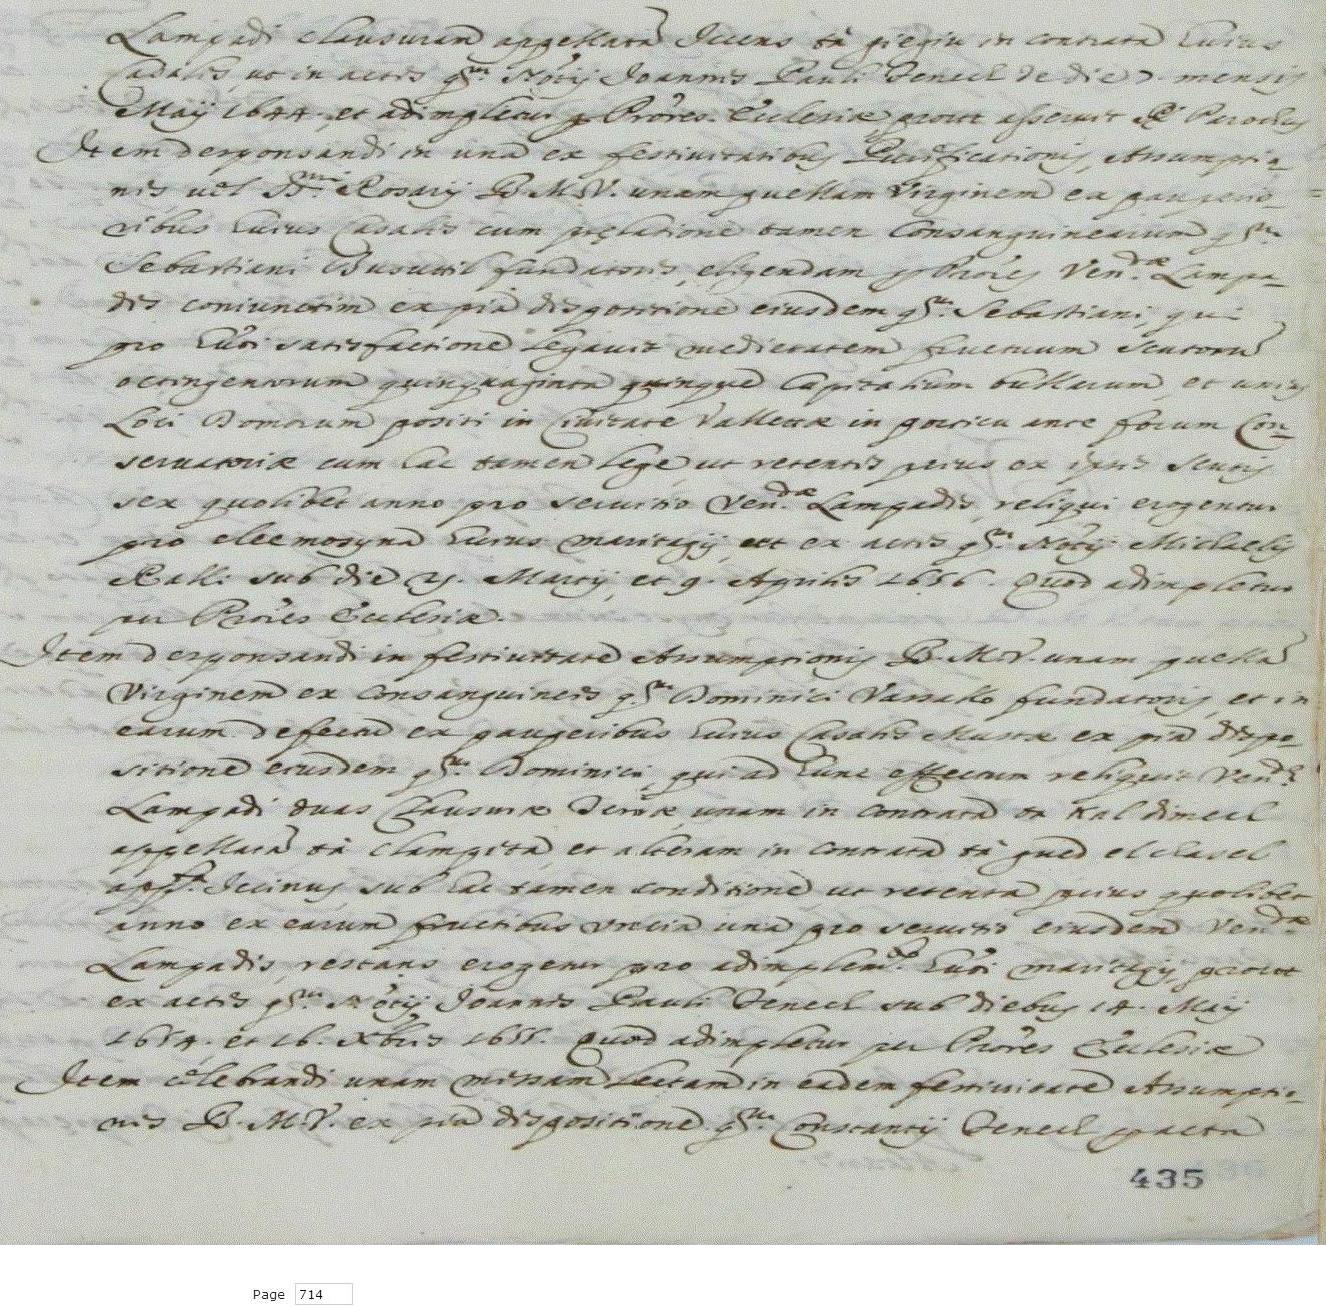 Lampadi clausuram appellatã Iecens tà giegiu in contrata huius
Casalis, ut in actis qm Notrij Joannis Pauli Fenech de die 7. mensis
Maij 1644. et adimpletur p Prores Ecclesiæ prout asseruit Rd Parochus
Item desponsandi in una ex festivitatibus Purificationis, Assumptio-
nis, vel SSmi Rosarij B.M.V. unam puellam Virginem ex pauperio-
ribus huius Casalis cum prelatione tamen Consanguinearum qm
Sebastiani Busuttil fundatoris, eligendam p Prores Vendæ Lampa-
dis coniunctim ex pia dispositione eiusdem qm Sebastiani, qui
pro huiõi satisfactione legavit medietatem fructuum scutorũ
octingentorum quinquaginta quinque Capitalium bullarum, et unius
Loci Domorum positi in Civitate Vallettæ in porticu ante forum Con-
servatoriæ cum hac tamen lege, ut retentis prius ex ipsis scutis
sex quolibet anno pro servitio Vendæ Lampadis, reliqui erogentur
pro eleemosyna huius maritagij, ut ex actis qm Notrij Michaelis
Ralli sub die Martij, et 9. Aprilis 1656. Quod adimpletur
per Prores Ecclesiæ.
Item desponsandi in festivitate Assumptionis B.M.V. unam puellã
Virginem ex Consanguineis qm Dominici Vassallo fundatoris, et in
earum defectu ex pauperibus huius Casalis Mustæ ex pia dispo-
sitione eiusdem qm Dominici, qui ad hunc effectum reliquit Vendæ
Lampadi duas Clausuræ Terræ, unam in contrata ta Hal dimech
appellatã tà Clampita, et alteram in contrata tà gued el Casel
appm Iecinus, sub hac tamen conditione, ut retenta prius quolibet
anno ex earum fructibus uncia una pro servitio eiusdem Vendæ
Lampadis, restans erogetur pro adimplemto huiõi maritagij prout
ex actis qm Notrij Joannis Pauli Fenech sub diebus 14. Maij
1654. et 16. Xbris 1655. Quod adimpletur per Prores Ecclesiæ
Item celebrandi unam missam lectam in eadem festivitate Assumptio-
nis B.M.V. ex pia dispositione qm Constantij Fenech p acta
435
Page 714